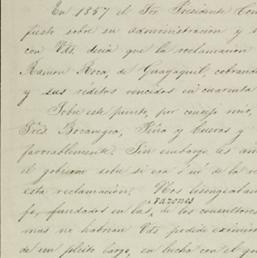 En 1857 el Sor Presidente Con
fiesto sobre su administracion y s
con Vds. decia que la reclamacion
Ramon Roca, de Guayaquil, cobrando
y sus réditos vencidos en cuarenta
Sobre este punto, por consejo mio,
Sres. Bocanegra, Piña y Cuevas y
favorablemente. Sin embargo les añ
el gobierno sobre si era ó no de la
esta reclamacion. Vds
fo, fundados en las razones de los consultores
mas no habrian Vds. podido eximir
de un pleito largo, en lucha con el